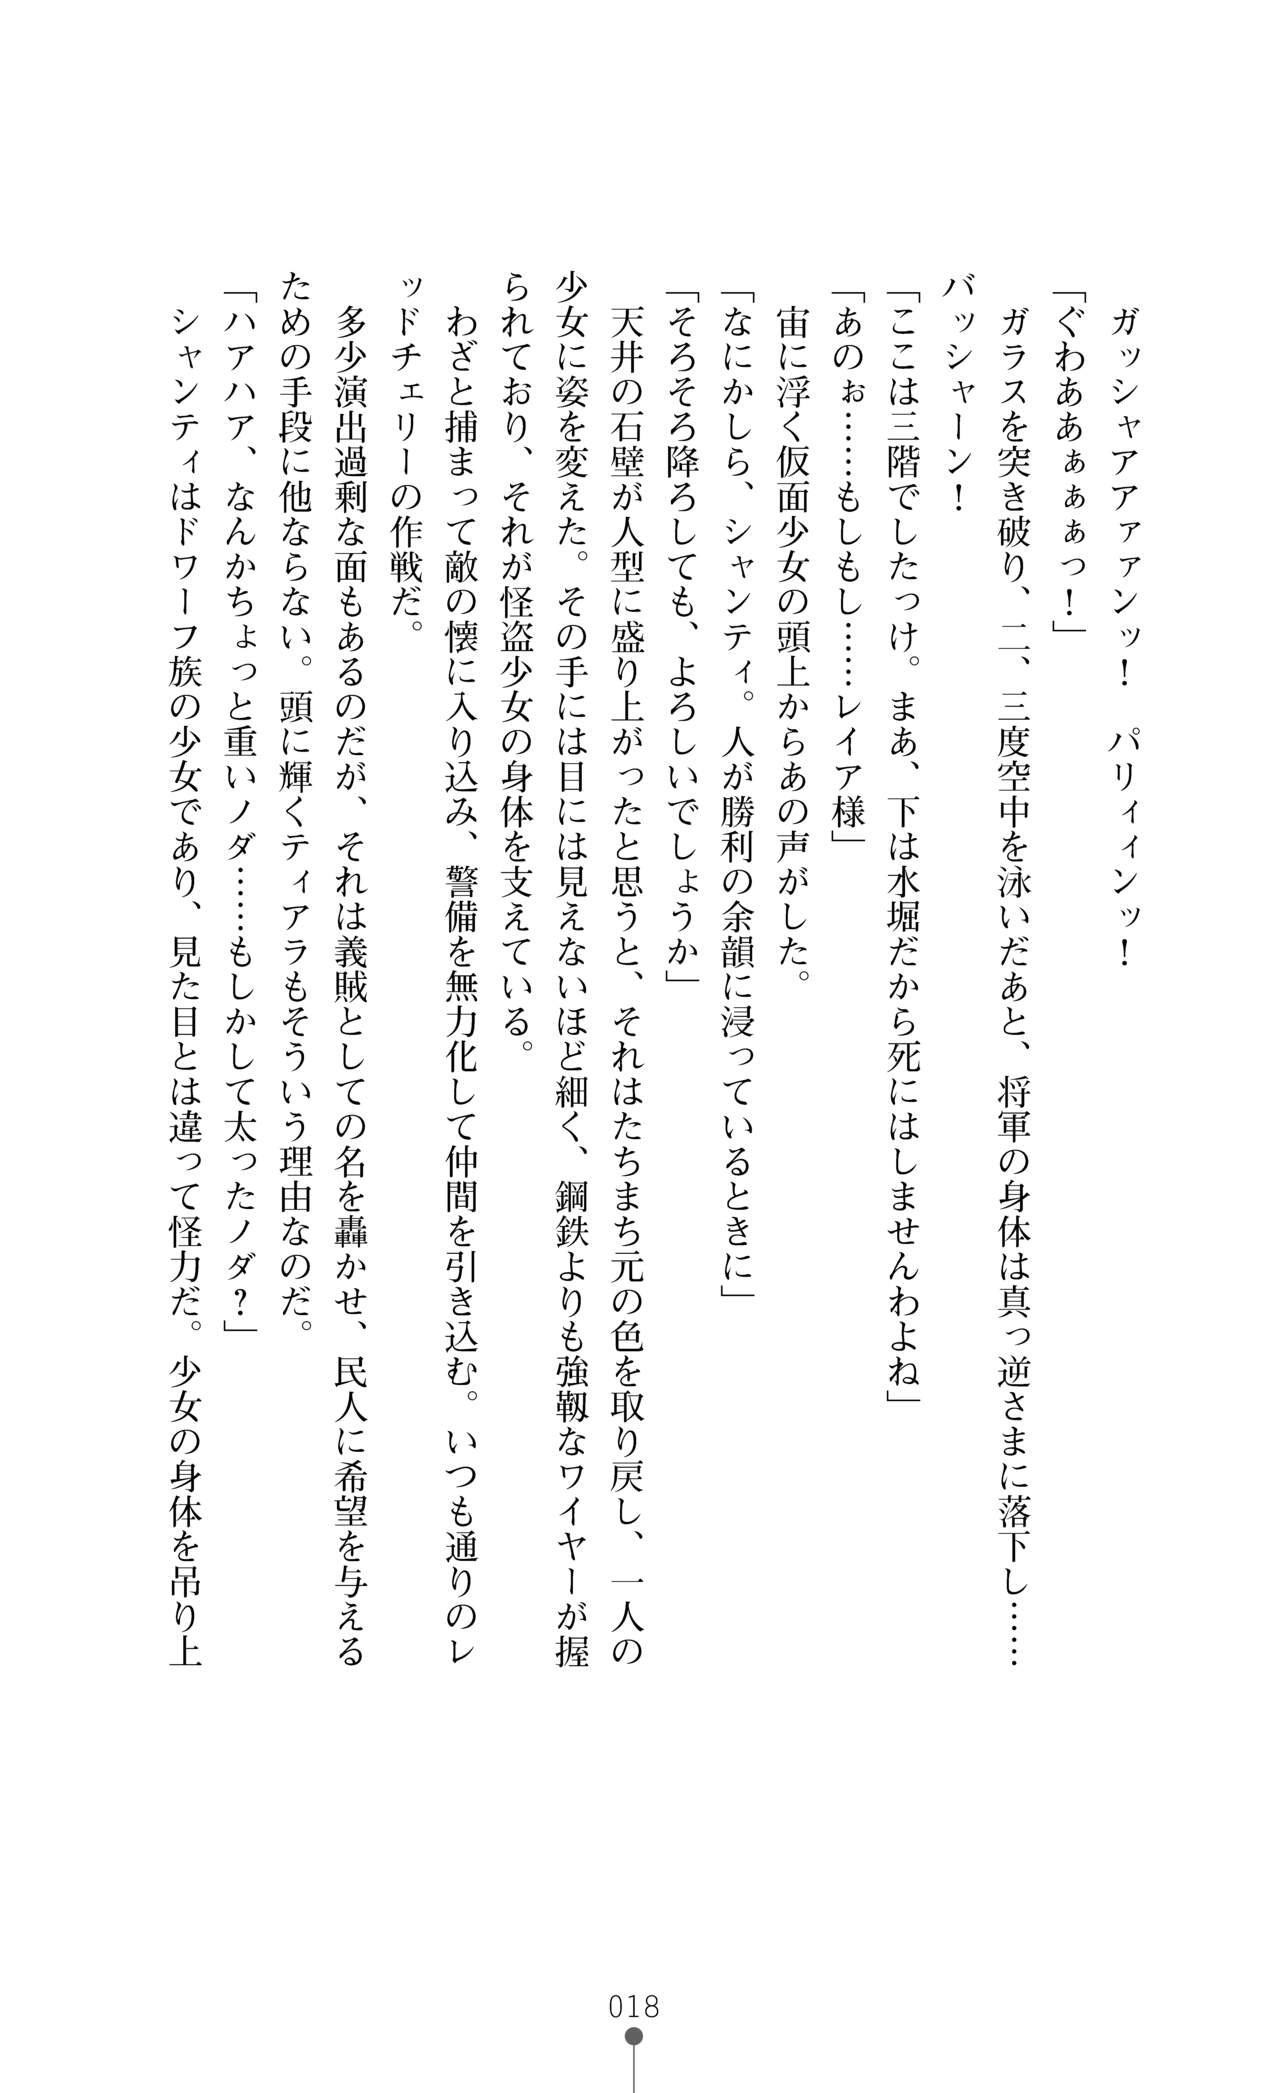 ガッシャアアァァンッ！　パリィィンッ！
「ぐわああぁぁぁっ！」
　ガラスを突き破り、二、三度空中を泳いだあと、将軍の身体は真っ逆さまに落下し……
バッシャーン！
「ここは三階でしたっけ。まあ、下は水堀だから死にはしませんわよね」
「あのぉ……もしもし……レイア様」
　宙に浮く仮面少女の頭上からあの声がした。
「なにかしら、シャンティ。人が勝利の余韻に浸っているときに」
「そろそろ降ろしても、よろしいでしょうか」
　天井の石壁が人型に盛り上がったと思うと、それはたちまち元の色を取り戻し、一人の
少女に姿を変えた。その手には目には見えないほど細く、鋼鉄よりも強靱なワイヤーが握
られており、それが怪盗少女の身体を支えている。
　わざと捕まって敵の懐に入り込み、警備を無力化して仲間を引き込む。いつも通りのレ
ッドチェリーの作戦だ。
　多少演出過剰な面もあるのだが、それは義賊としての名を轟かせ、民人に希望を与える
ための手段に他ならない。頭に輝くティアラもそういう理由なのだ。
「ハアハア、なんかちょっと重いノダ……もしかして太ったノダ？」
　シャンティはドワーフ族の少女であり、見た目とは違って怪力だ。少女の身体を吊り上
018